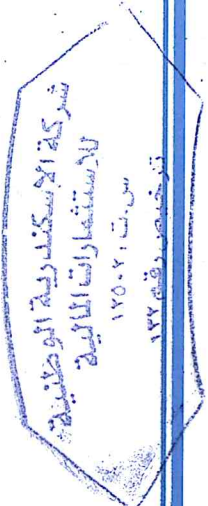 شركة الاسكندرية الوطنية
للاستثمارات المالية
س.ت ١٢٥٠٢
ترخيص رقم ١٣٢